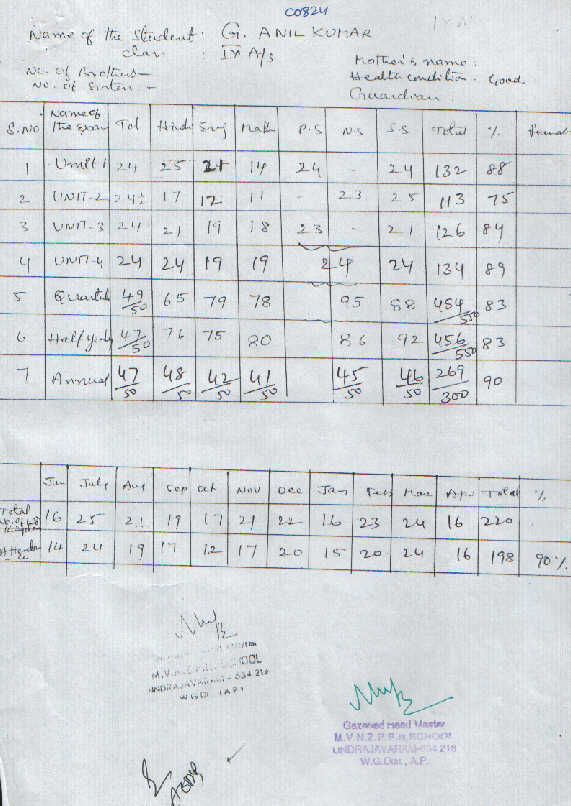 C0824
Name of the Student: G. ANIL KUMAR
class : IX A/3
Mother's name:
No. of Brothers— Health condition. Good
No. of Sisters: - Guardian
S.NO Name of the Exam Tel Hindi Eng Math P.S N.S S.S Total %
1 Unit 1 24 25 21 14 24 - 24 132 88
2 UNIT-2 24½ 17 12 11 - 23 25 113 75
3 UNIT-3 24 21 19 18 23 - 21 126 84
4 UNIT-4 24 24 19 19 24 24 134 89
5 Quarterly 49/50 65 79 78 95 88 454/550 83
6 Half yearly 47/50 76 75 80 86 92 456/550 83
7 Annual 47/50 48/50 42/50 41/50 45/50 46/50 269/300 90
Jun July Aug Sep Oct Nov Dec Jan Feb Mar Apr Total %
Total No. of 16 25 21 19 17 21 22 16 23 24 16 220
14 24 19 17 12 17 20 15 20 24 16 198 90%
M.V.N.Z.P.P.H. SCHOOL
UNDRAJAVARAM - 534 216
W.G.Dt. (A.P.)
Gazetted Head Master
M.V.N.Z.P.P.H. SCHOOL
UNDRAJAVARAM-534 216
W.G.Dist., A.P.